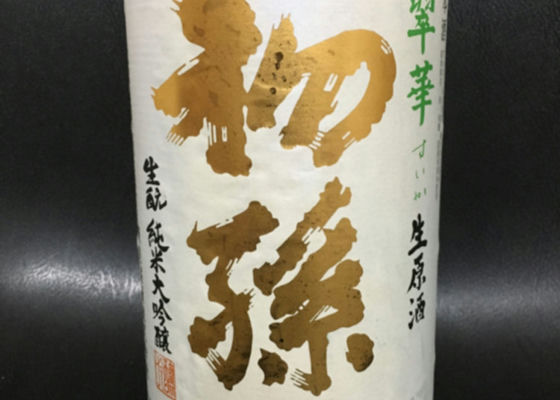 翠華
すいか
生原酒
初孫
生酛 純米大吟醸